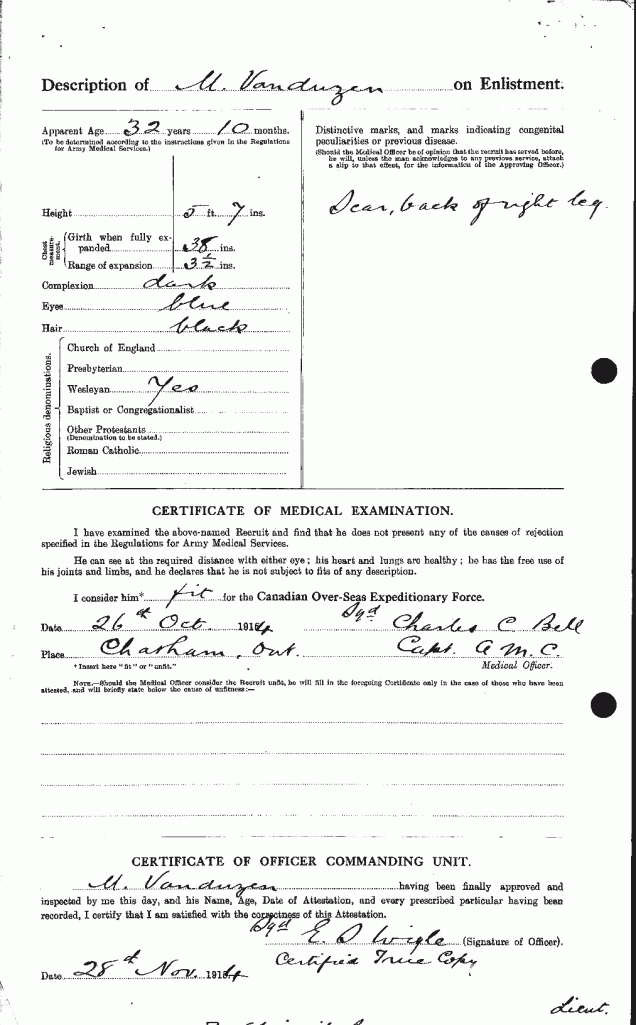 Description of M. Vanduzen on Enlistment.
Apparent Age 32 years 10 months.
(To be determined according to the instructions given in the Regulations
for Army Medical Services.)
Height 5 ft. 7 ins.
Chest measurement.
Girth when fully expanded 38 ins.
Range of expansion 3 1/2 ins.
Complexion dark
Eyes blue
Hair black
Religious denominations.
Church of England
Presbyterian
Wesleyan Yes
Baptist or Congregationalist
Other Protestants
(Denomination to be stated.)
Roman Catholic
Jewish
Distinctive marks, and marks indicating congenital
peculiarities or previous disease.
(Should the Medical Officer be of opinion that the recruit has served before,
he will, unless the man acknowledges to any previous service, attach
a slip to that effect, for the information of the Approving Officer.)
Scar, back of right leg.
CERTIFICATE OF MEDICAL EXAMINATION.
I have examined the above-named Recruit and find that he does not present any of the causes of rejection
specified in the Regulations for Army Medical Services.
He can see at the required distance with either eye; his heart and lungs are healthy; he has the free use of
his joints and limbs, and he declares that he is not subject to fits of any description.
I consider him* fit for the Canadian Over-Seas Expeditionary Force.
Date 26th Oct. 1914 Sgd Charles C Bell
Place Chatham, Ont. Capt. A M. C.
*Insert here "fit" or "unfit." Medical Officer.
NOTE.—Should the Medical Officer consider the Recruit unfit, he will fill in the foregoing Certificate only in the case of those who have been
attested, and will briefly state below the cause of unfitness:—
CERTIFICATE OF OFFICER COMMANDING UNIT.
M. Vanduzen having been finally approved and
inspected by me this day, and his Name, Age, Date of Attestation, and every prescribed particular having been
recorded, I certify that I am satisfied with the correctness of this Attestation.
Sgd E. S Wigle (Signature of Officer).
Certified True Copy
Date 28th Nov. 1914
Lieut.